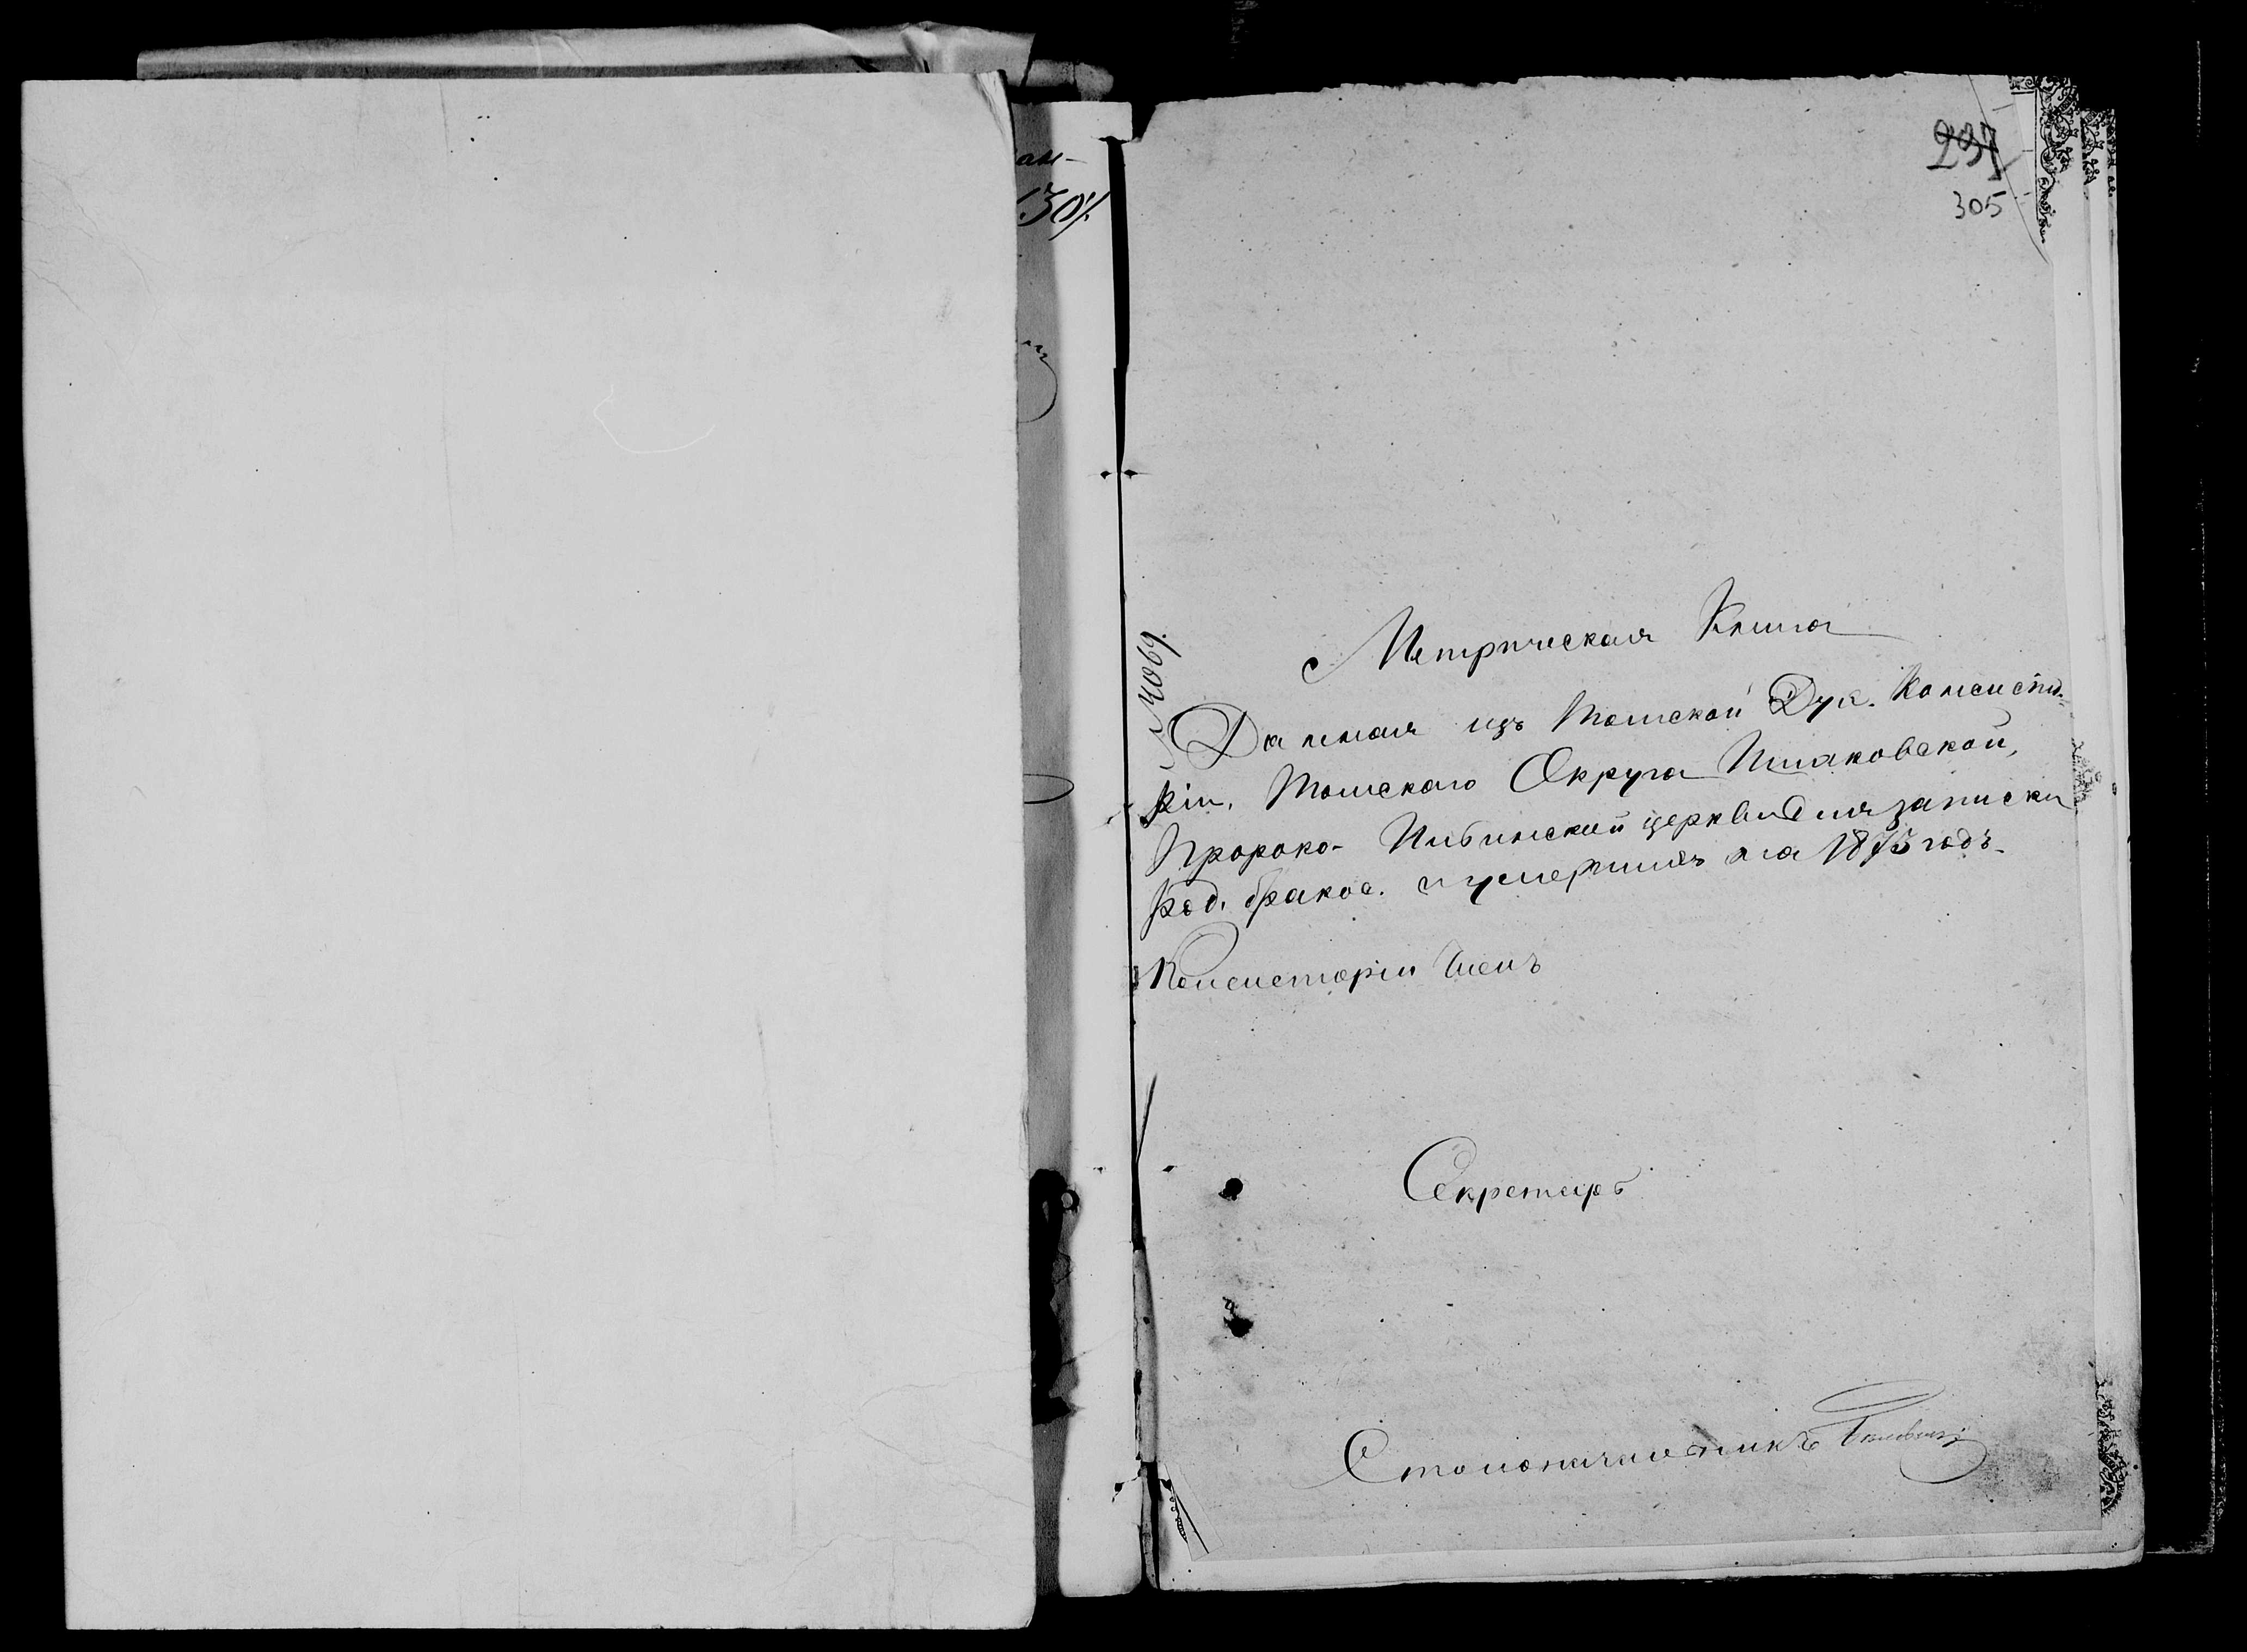 ак-
130/.
237
305
№ 4069.
Метрическая Книга
Данная изъ Томской Дух. Консисто-
ріи, Томскаго Округа Ишаковской,
Пророко-Ильинской церкви для записки
род. браков. и умершихъ на 1875 годъ.
Консисторіи Членъ
Секретарь
Столоначальникъ